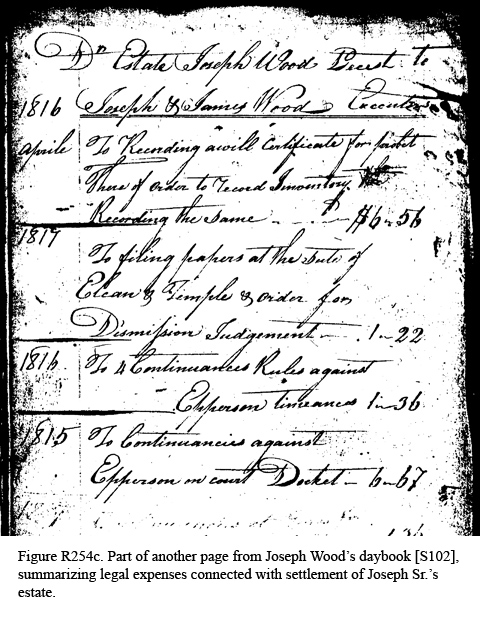 Dr Estate Joseph Wood Decest to
1816 Joseph & James Wood Executers
Aprile To Recording a will Certificate for probit
There of order to record Inventory
Recording the same $6-56
1817
To filing papers at the sute of
Elcan & Temple & order for
Dismission Judgement 1-22
1816 To 4 Continuances Rules against
Epperson 1-36
1815 To Continuancies against
Epperson on court Docket - 6-67
Figure R254c. Part of another page from Joseph Wood’s daybook [S102],
summarizing legal expenses connected with settlement of Joseph Sr.’s
estate.